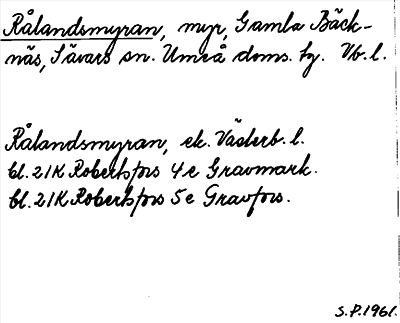 Rålandsmyran, myr, Gamla Bäck-
näs, Sävars sn. Umeå doms. hg. Vb. l.
Rålandsmyran, ek. Västerb. l.
bl. 21K Robertsfors 4e Gravmark.
bl. 21K Robertsfors 5e Gravfors.
S.P. 1961.